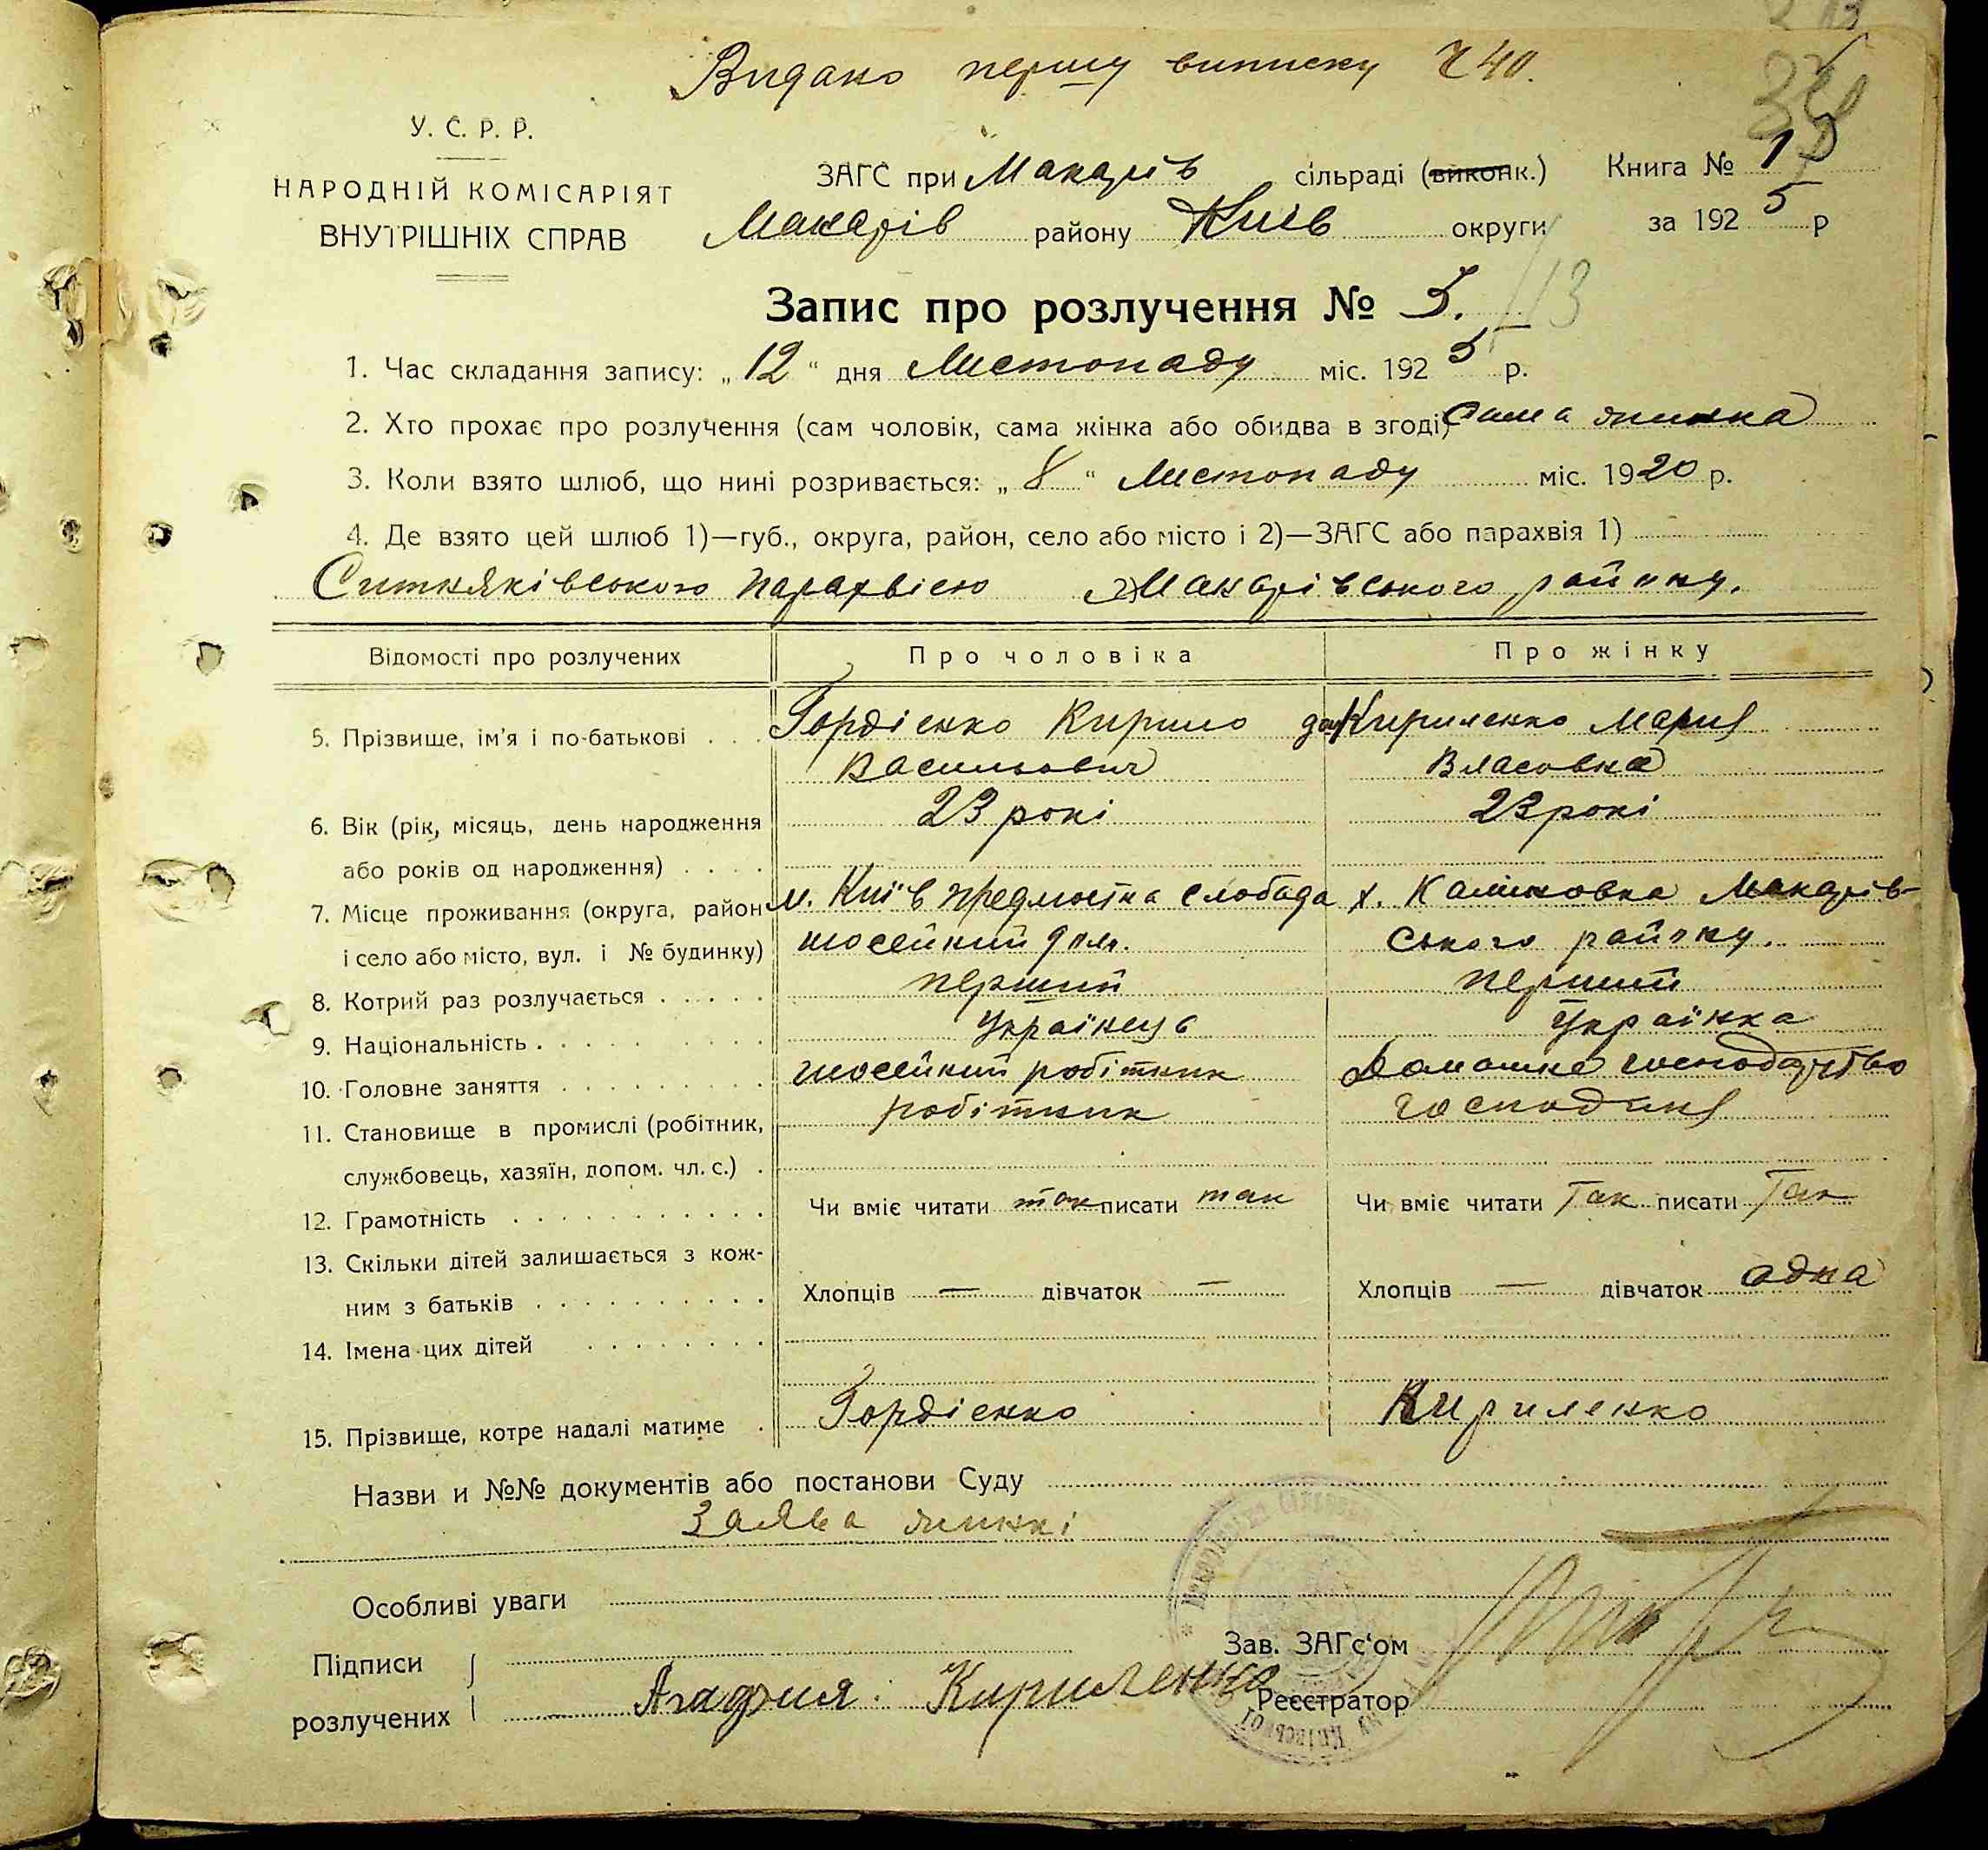 Видано першу виписку Ч 40.
У. С. Р. Р.
НАРОДНІЙ КОМІСАРІЯТ
ВНУТРІШНІХ СПРАВ
ЗАГС при Макарів сільраді (виконк.) Книга № 1
Макарів району Київ округи за 1925 р
Запис про розлучення № 5. 13
1. Час складання запису: „12“ дня Листопаду міс. 1925 р.
2. Хто прохає про розлучення (сам чоловік, сама жінка або обидва в згоді) Сама жинка
3. Коли взято шлюб, що нині розривається: „8“ Листопаду міс. 1920 р.
4. Де взято цей шлюб 1)—губ., округа, район, село або місто і 2)—ЗАГС або парахвія 1)
Ситняківського парахвією Макарівського району.
Відомості про розлучених Про чоловіка Про жінку
5. Прізвище, ім'я і по-батькові Гордієнко Кирило Кириленко Мария
Васильович Власовна
6. Вік (рік, місяць, день народження 23 рокі 23 рокі
або років од народження)
7. Місце проживання (округа, район м. Київ предмостна слобода х. Калиновка Макарів-
і село або місто, вул. і № будинку) шосейний дом. ського району.
8. Котрий раз розлучається перший перший
9. Національність Українець Українка
10. Головне заняття шосейний робітник Домашнє господарство
11. Становище в промислі (робітник, робітник господиня
службовець, хазяїн, допом. чл. с.)
12. Грамотність Чи вміє читати так писати так Чи вміє читати Так писати Так
13. Скільки дітей залишається з кож-
ним з батьків Хлопців — дівчаток — Хлопців — дівчаток одна
14. Імена цих дітей
15. Прізвище, котре надалі матиме Гордієнко Кириленко
Назви и №№ документів або постанови Суду
Заява жинкі
Особливі уваги
Підписи Зав. ЗАГс'ом
розлучених Кириленко Реєстратор